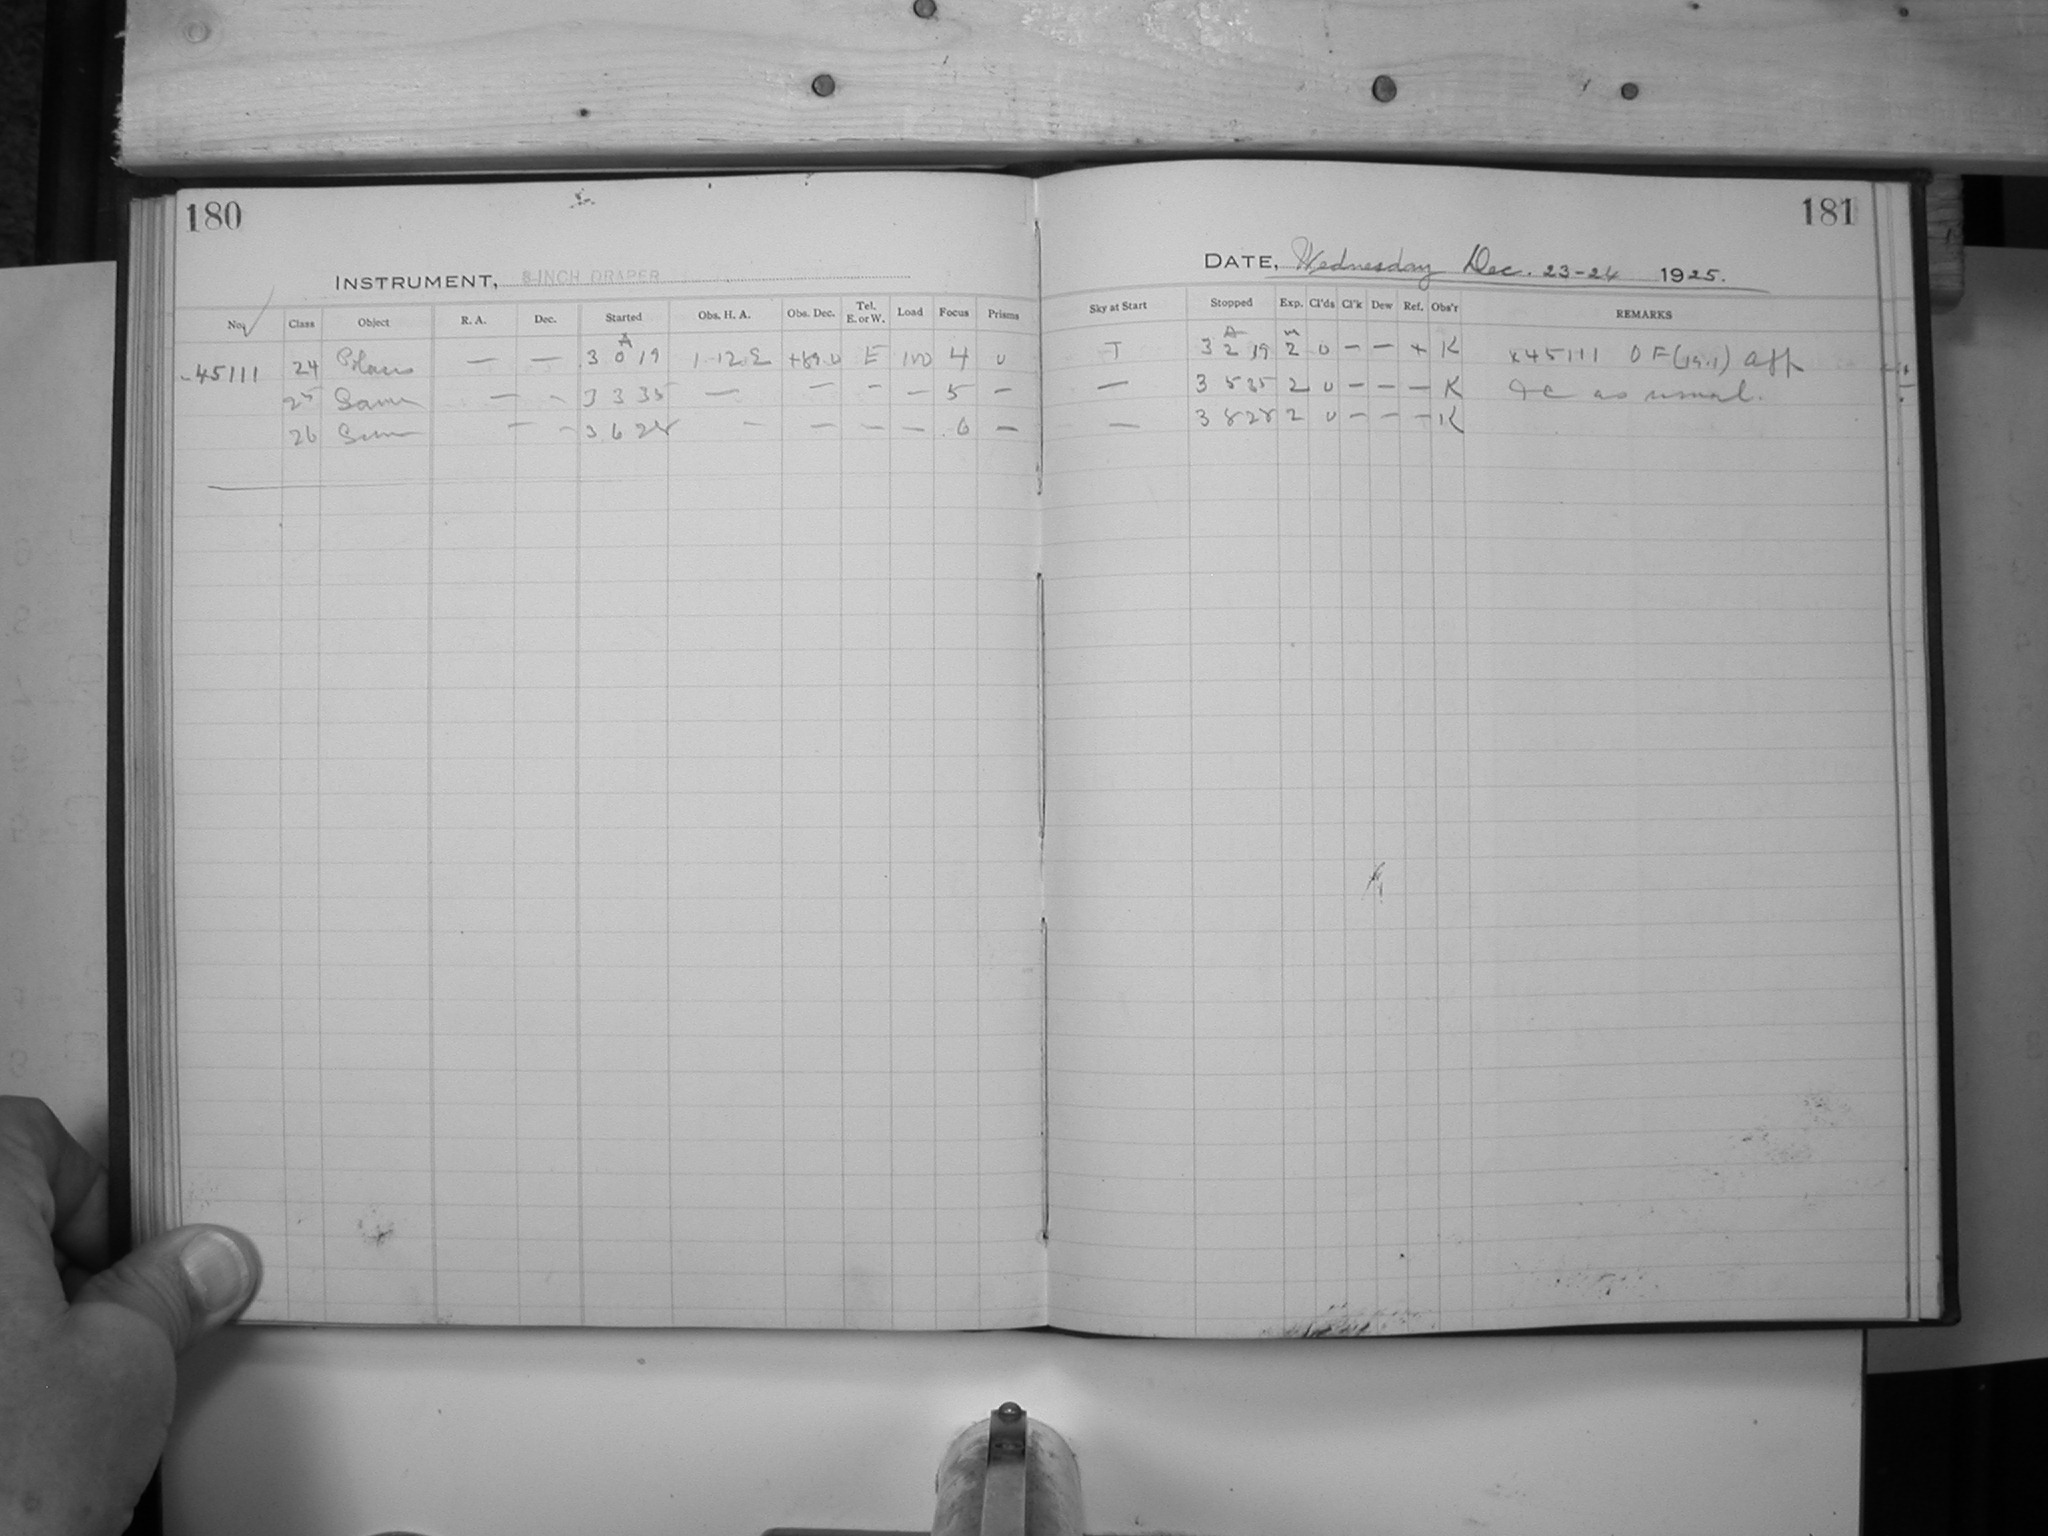 180
INSTRUMENT, 8-INCH DRAPER
No. Class Object R. A. Dec. Started Obs. H. A. Obs. Dec. Tel. E. or W. Load Focus Prisms
h
45111 24 — — 3 0 19 1-12.2 +89.0 E 100 4 0
25 Same — - 3 3 35 — — - — 5 —
26 Same — - 3 6 28 — — — — 6 —
181
DATE, Wednesday Dec. 23-24 1925.
Sky at Start Stopped Exp. Cl'ds Cl'k Dew Ref. Obs'r REMARKS
h m
T 3 2 19 2 0 — — + K x45111 OF(19.1) aff
— 3 5 35 2 0 — — — K &c as usual.
— 3 8 28 2 0 — — — K